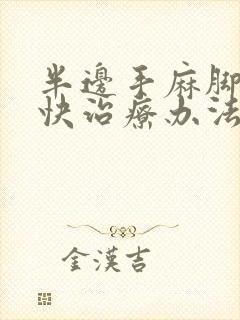 半邊手麻腳
快治療办法
金漢吉